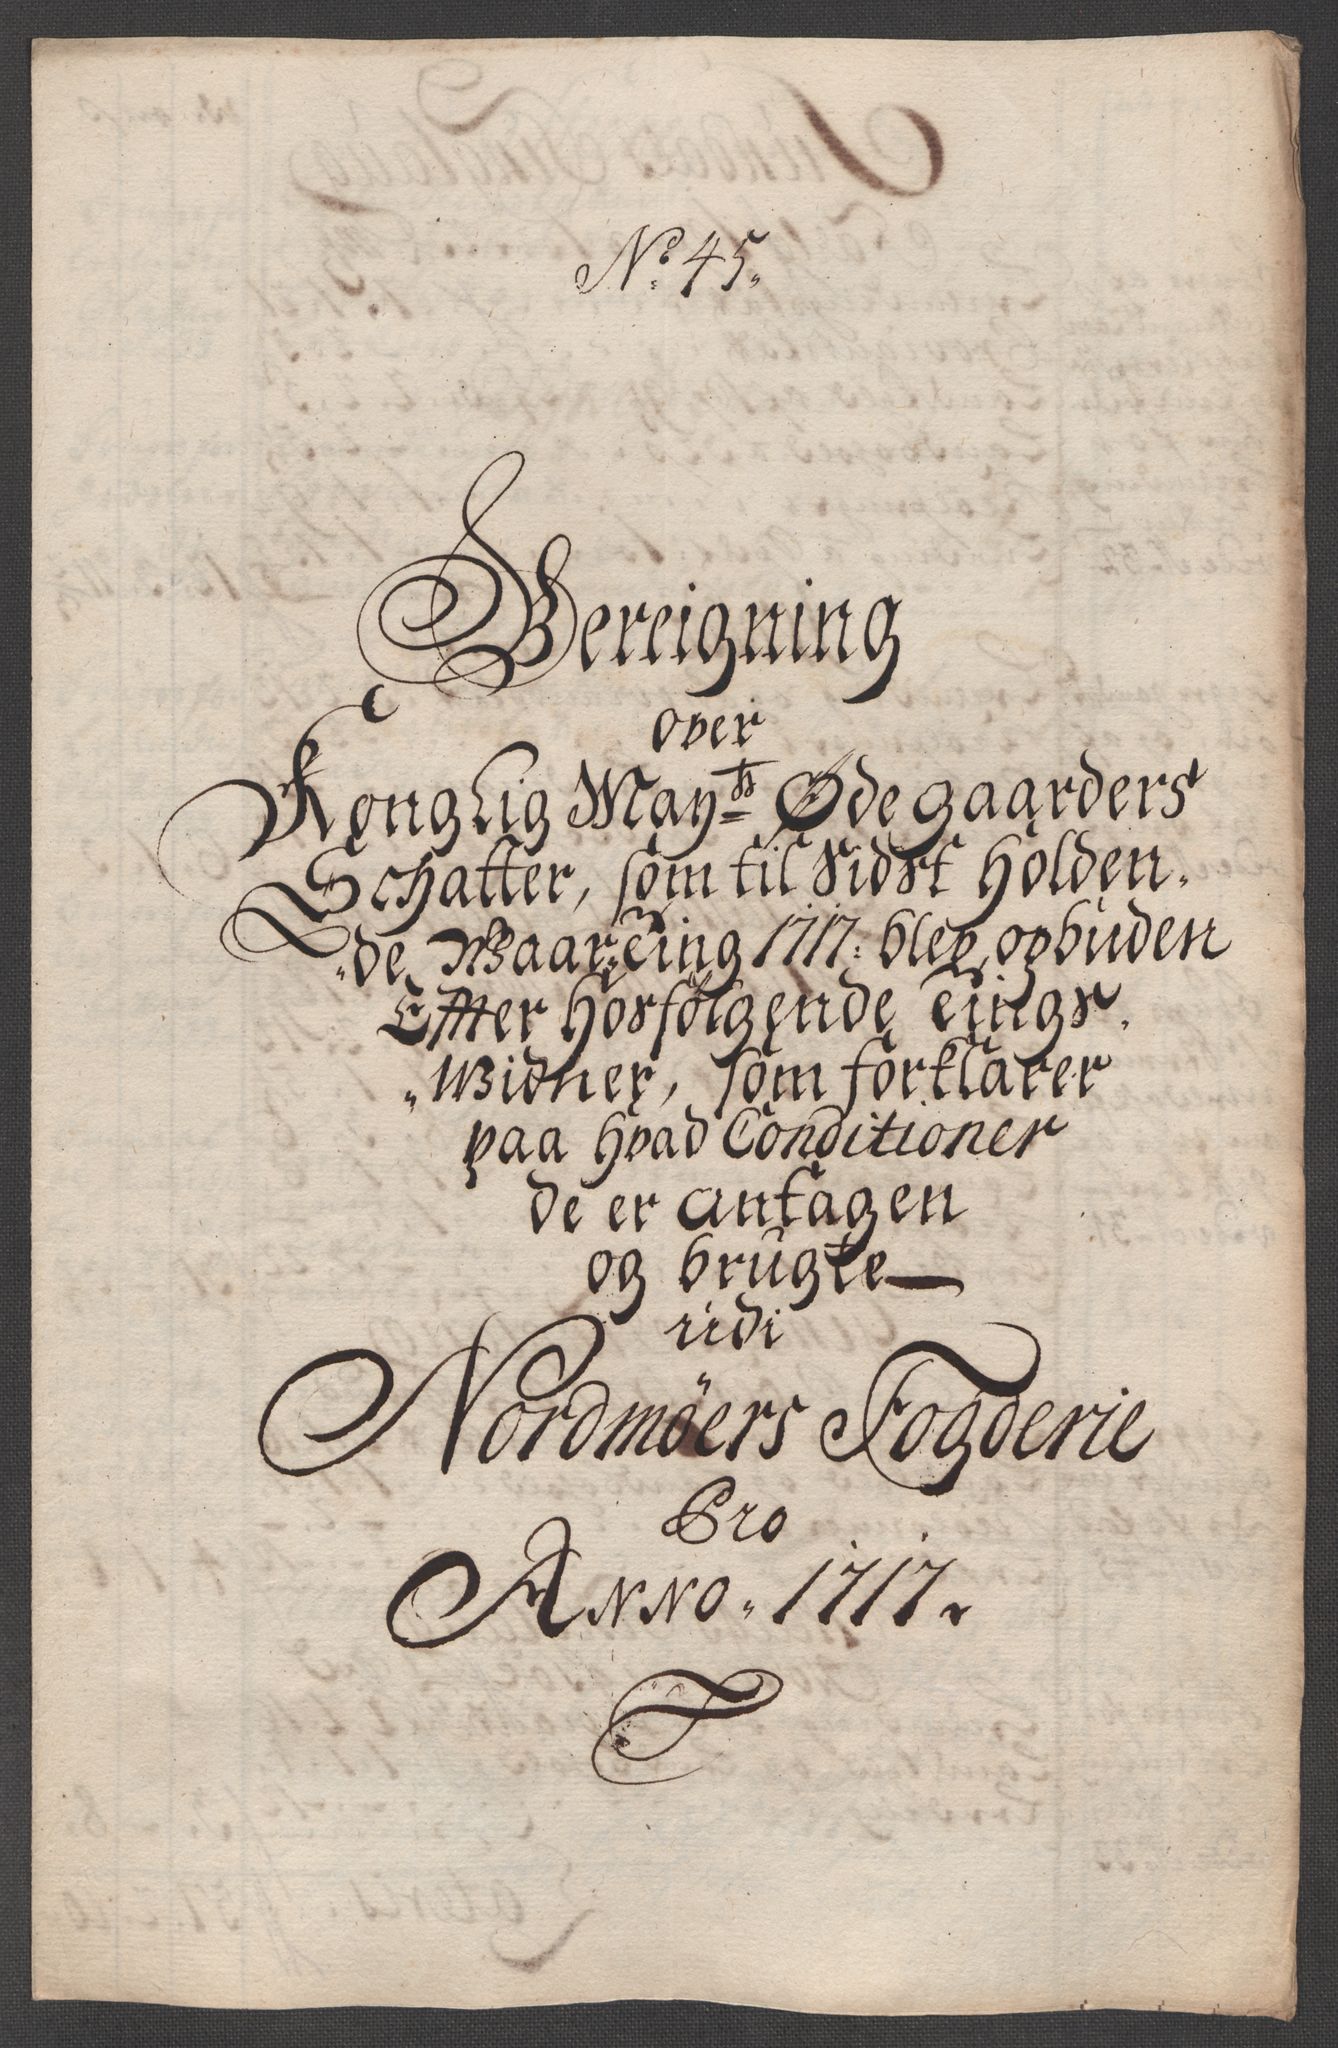 No. 45.
Bereigning
over
Konglig Mayts Ødegaarders
Schatter, som til sidst holden,
„de Waar„ting 1717: blev opbuden
Effter hosfølgende Tings,
„Widner, som forklarer
paa hvad Conditioner
de er antagen
og brugte
udi
Nordmöers Fogderie
Pro
Anno. 1717.